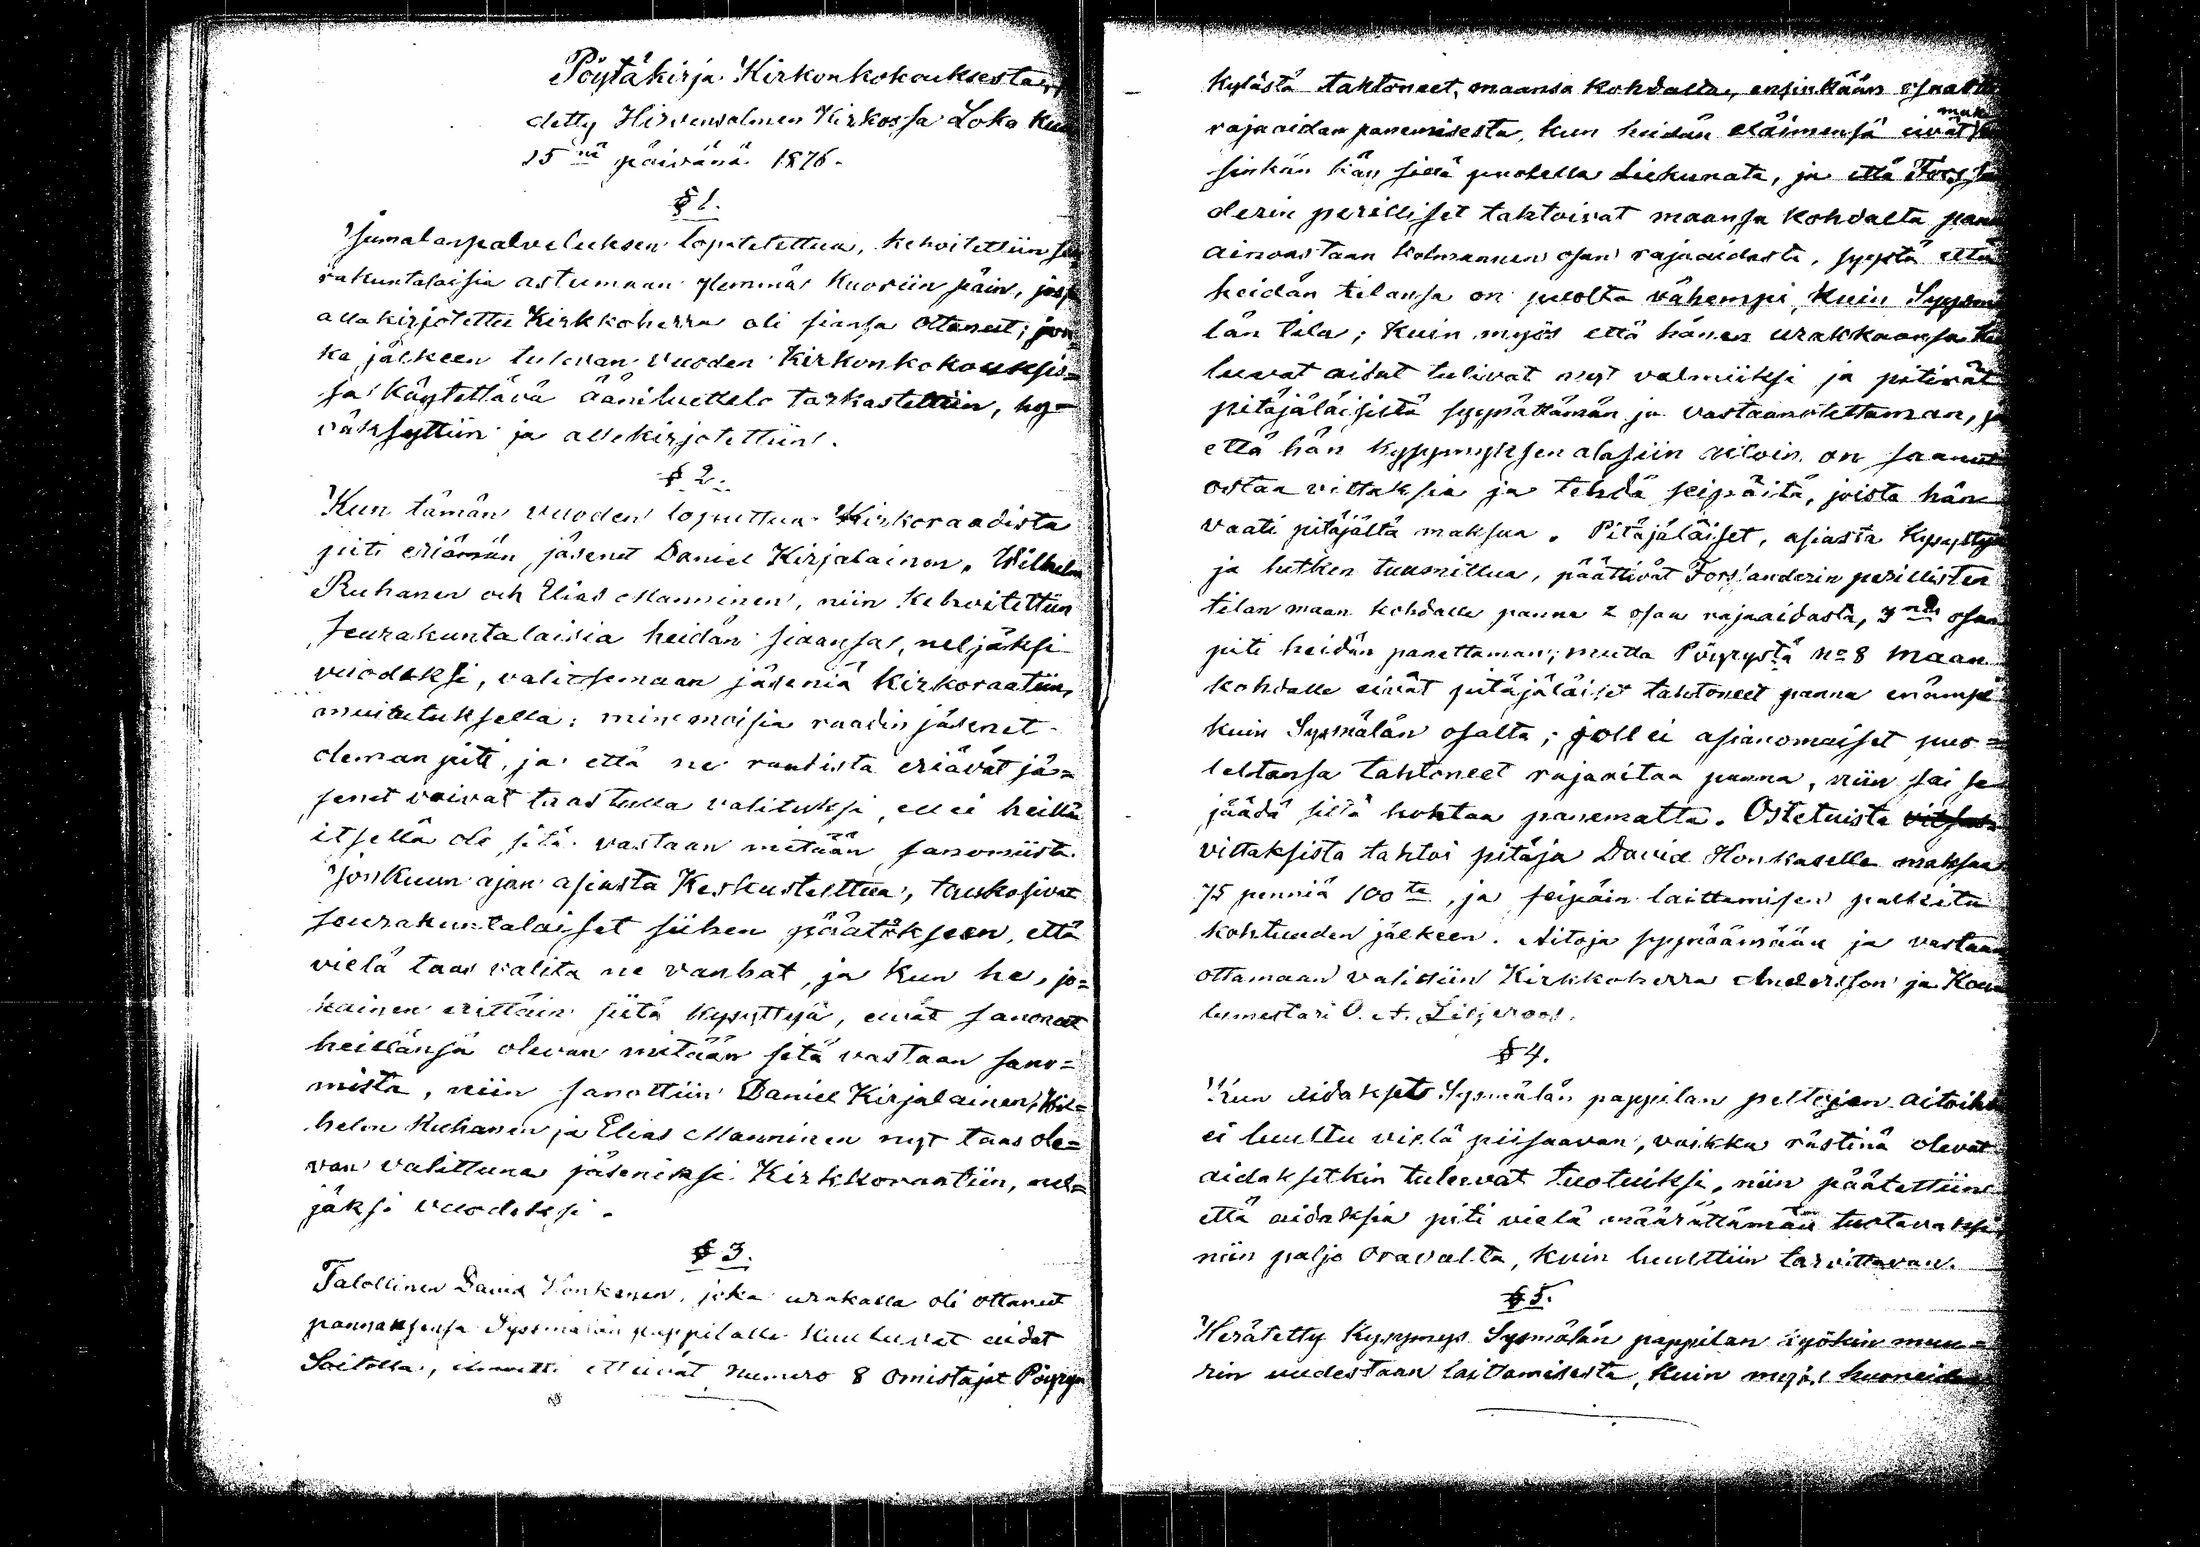 Pöytäkirja Kirkonkokouksesta,
detty Hirvensalmen Kirkossa Loka kuu
15nä päivänä 1876.
§ 1.
Jumalanpalveluksen lopetettua, kehoitettiin seu
rakuntalaisia astumaan ylemmä Kuoriin päin, jossa
allakirjotettu Kirkkoherra oli siansa ottanut; jon
ka jälkeen tulevan vuoden Kirkonkokouksis=
sa Käytettävä ääniluettelo tarkastettiin, hy=
väksyttiin ja allekirjotettiin.
§ 2.
Kun tämän vuoden loputtua Kirkoraadista
piti eriämän jäsenet Daniel Kirjalainen, Wilhelm
Ruhanen och Elias Manninen, niin Kehoitettiin
seurakuntalaisia heidän siaansa, neljäksi
vuodeksi, valitsemaan jäseniä Kirkoraatiin,
muitutuksella; mimmoisia raadin jäsenet
oleman piti, ja että ne raadista eriävät jä=
senet voivat taas tulla valituksi, ell ei heillä
itsellä ole sitä vastaan mitään sanomista.
Jonkuun ajan asiasta Keskusteltua, taukosivat
seurakuntalaiset siihen päätökseen, että
vielä taas valita ne vanhat, ja Kun he, jo=
kainen erittäin siitä kysyttyä, eivät sanoneet
heillänsä olevan mitään sitä vastaan sano=
mista, niin sanottiin Daniel Kirjalainen, Wil=
helm Ruhanen ja Elias Manninen nyt taas ole=
van valittuna jäseniksi Kirkkoraatiin, nel=
jäksi vuodeksi.
§ 3.
Talollinen David Honkanen, joka urakalla oli ottanut
pannaksensa Sysmälän pappilalle kuuluvat aidat
Soitolla, ett eivät Numero 8 omistajat Pöyryn
Kylästä tahtoneet, maansa kohdalla, ensinkään osaa
rajaaidan panemisesta, kun heidän eläimensä eivät
muka
sinkän kän sillä puolella liekunata, ja että Forss
derin perilliset tahtoivat maansa kohdalta pan
ainoastaan kolmannen osan rajaaidasta, syystä että
heidän tilansa on puolta vähempi, kuin Sysmä
län tila; Kuin myös että hänen urakkaansa ku
luvat aidat tulivat nyt valmiiksi ja pitivät
pitäjäläisistä syynättämän ja vastaanotettaman, ja
että hän kysymyksen alasiin aitoin on saanut
ostaa vittaksia ja tehdä seipäitä, joista hän
vaati pitäjältä maksua. Pitäjäläiset, asiasta Kysyttyä
ja hetken tuumittua, päättivät Forssanderin perillisten
tilan maan kohdalle panna 2 osaa rajaaidasta, 3nen osan
piti heidän panettaman; mutta Pöyrystä No 8 maan
kohdalle eivät pitäjäläiset tahtoneet panna enämpi
kuin Sysmälän osalta; joll ei asianomaiset puo=
leltansa tahtoneet rajaaitaa panna, niin sai se
jäädä siltä kohtaa panematta. Ostetuista
vittaksista tahtoi pitäjä David Honkaselle maksaa
75 penniä 100ta, ja seipäin laittamisen palkita
kohtuuden jälkeen. Aitoja syynäämään ja vastaan
ottamaan valittiin Kirkkoherra Andersson ja Kou
lumestari O. A. Liljeroos.
§ 4.
Kun Aidakset Sysmälän pappilan peltojen aitoihin
ei luultu vielä piisaavan, vaikka rästinä olevat
aidaksetkin tulevat tuotuiksi, niin päätettiin
että aidaksia piti vielä määrättämän tuotavaksi,
niin paljo Oravalta, kuin luulttiin tarvittavan.
§ 5.
Herätetty Kysymys Sysmälän pappilan kyökin muu=
rin uudestaan laittamisesta, Kuin myös huoneiden